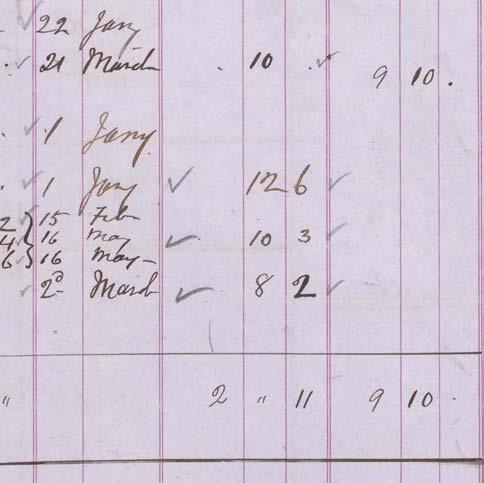 22 Jany
21 March . 10 . 9 10 .
1 Jany
1 Jany 12 6
2 15 Feb
4 16 May 10 3
6 16 May
2d March 8 2
" 2 " 11 9 10 .